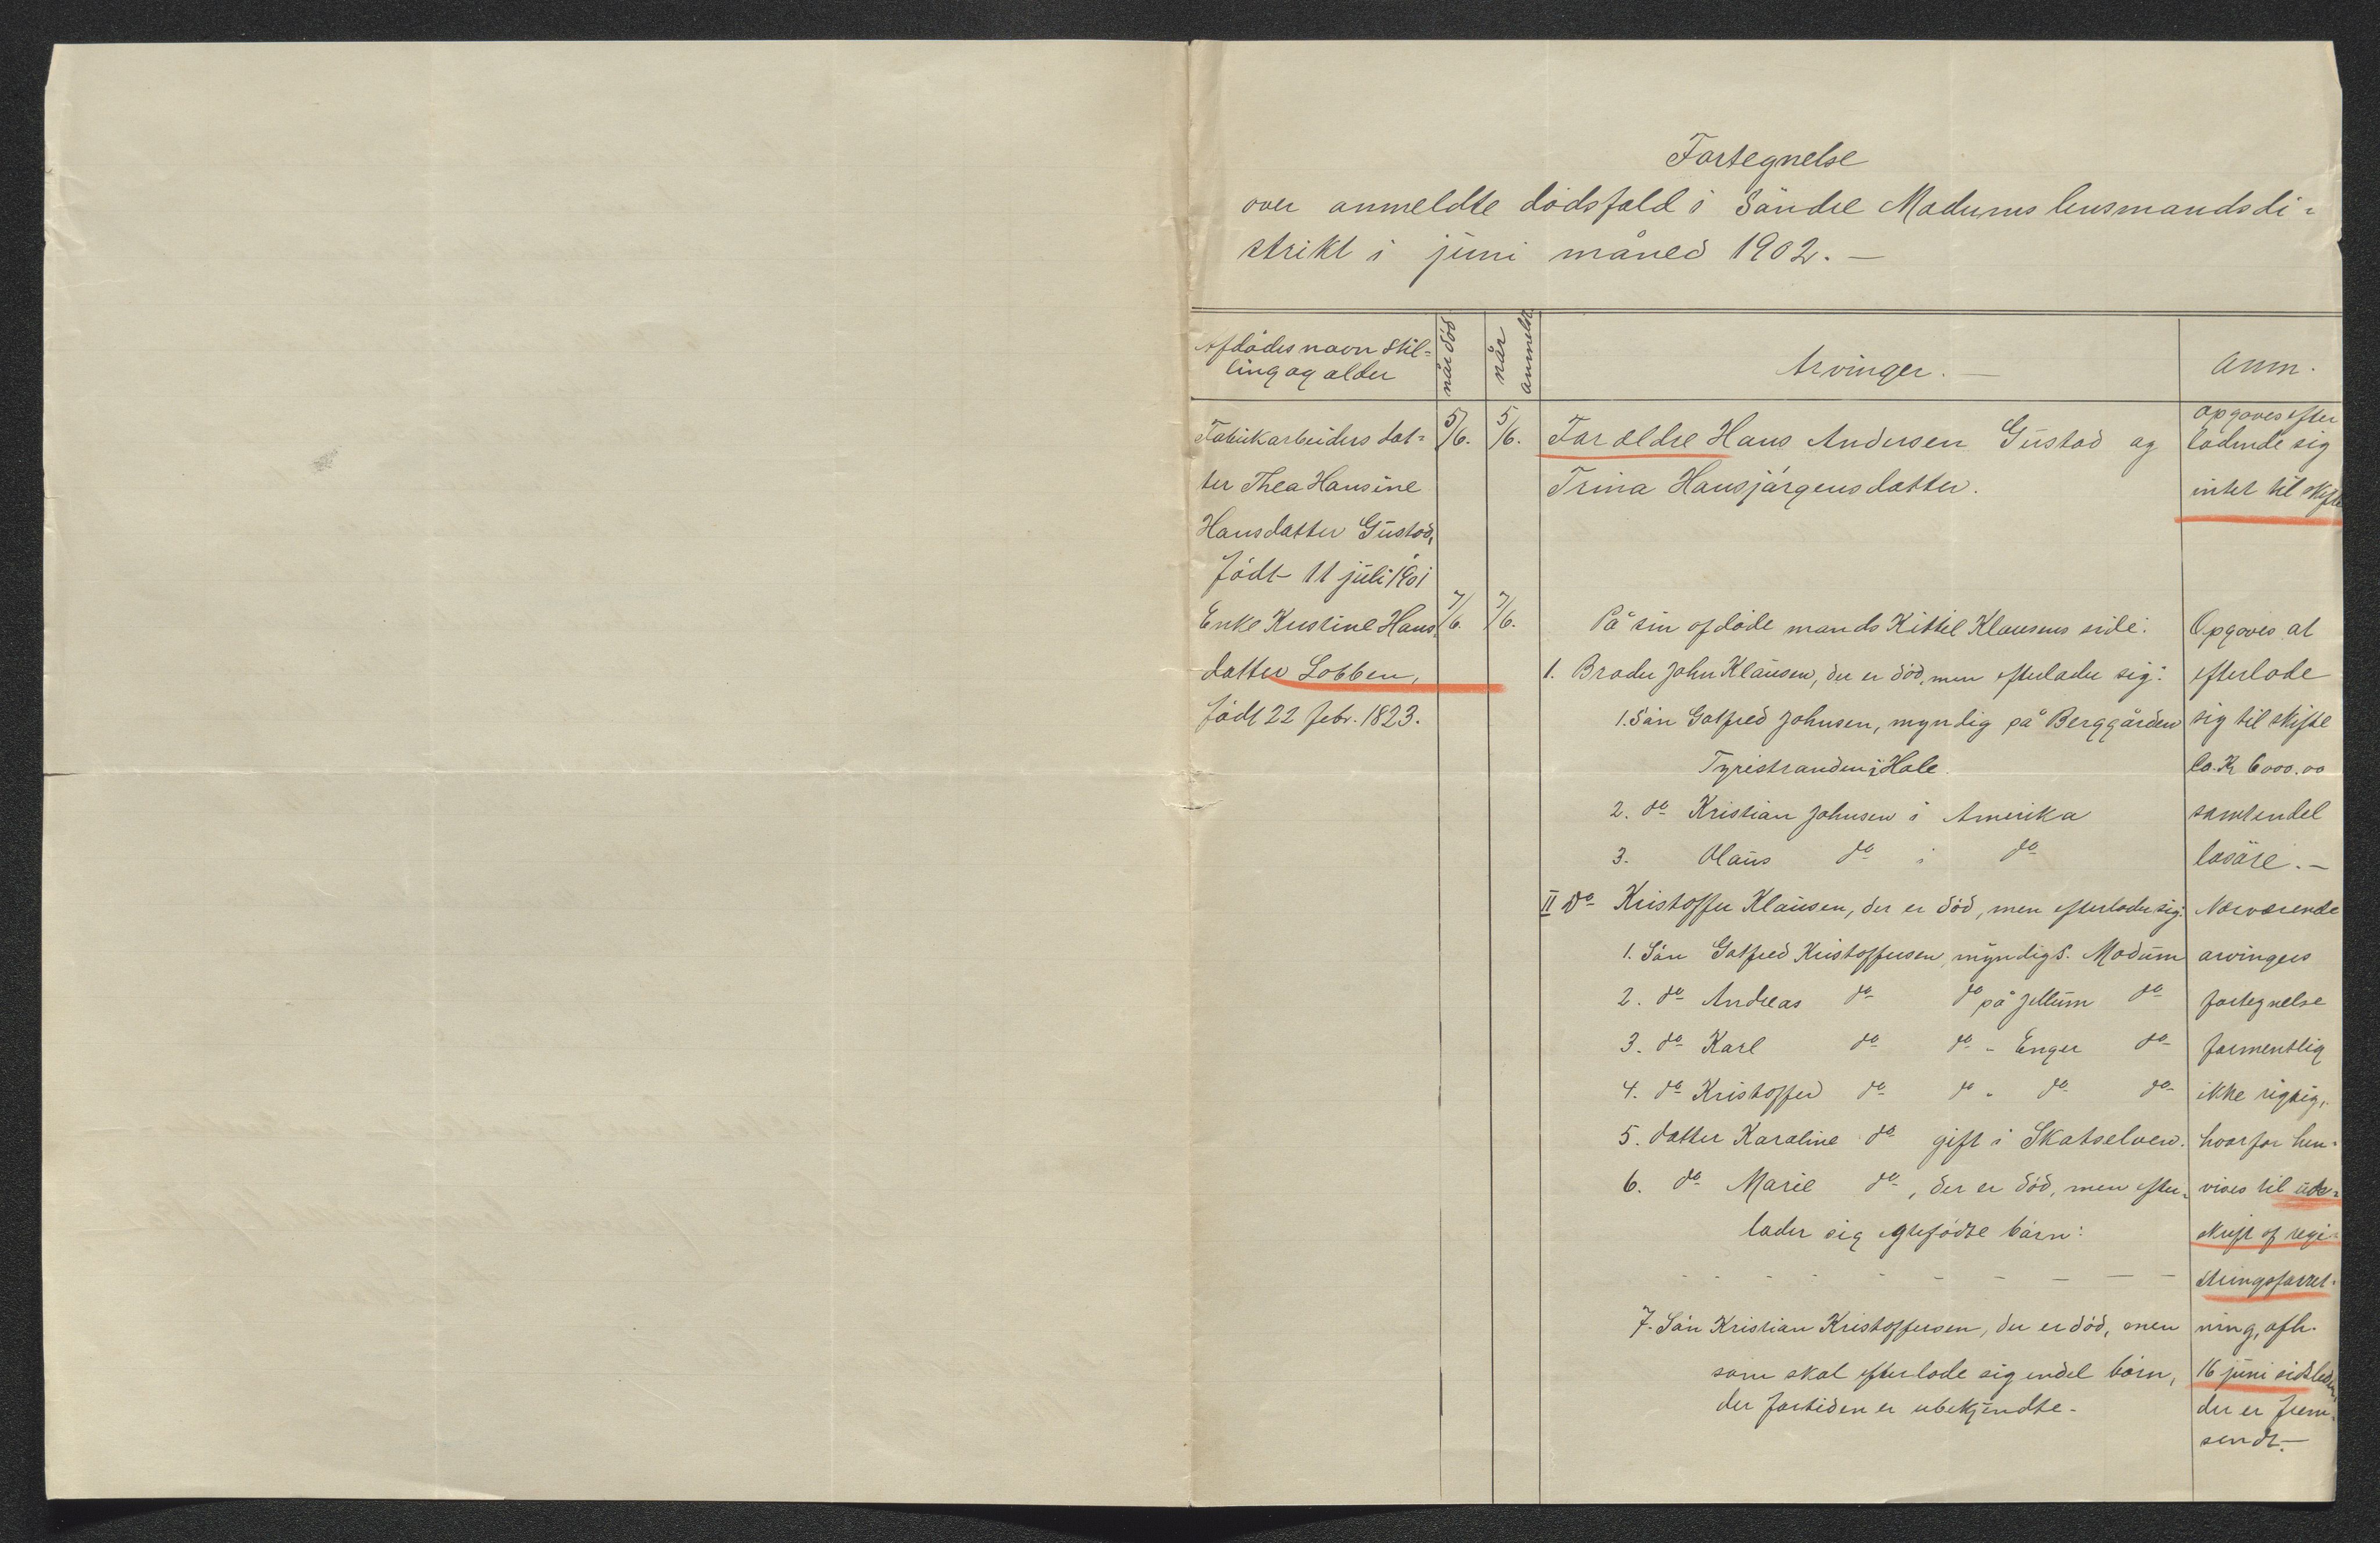 Fortegnelse
over anmeldte dödsfald i Söndre Modums lensmandsdi=
strikt i juni måned 1902. —
Afdödes navn stil=
ling og alder
når död
når
anmeldt
Arvinger. —
Anm.
Fabrikarbeiders dat=
ter Thea Hansine
Hansdatter Gustad,
född 11 juli 1901
5/6.
5/6.
Forældre Hans Andersen Gustad og
Trina Hansjörgensdatter.
Opgaves efter
ladende sig
intet til skifte
Enke Kristine Hans
datter Lobben,
född 22 febr. 1823.
7/6.
7/6.
På sin afdöde mands Kittil Klausens side:
1. Broder John Klausen, der er död, men efterlader sig:
1. Sön Gotfred Johnsen, myndig på Berggården
Tyristranden i Hole.
2. do Kristian Johnsen i Amerika
3. Olaus do i do
II Do Kristoffer Klausen, der er död, men efterlader sig:
1. Sön Gotfred Kristoffersen, myndig S. Modum
2. do Andreas do do på Jellum do
3. do Karl do do - Enger do
4. do Kristoffer do do - do do
5. datter Karoline do gift i Skotselven.
6. do Marie do, der er död, men efter=
lader sig ægtefödte börn:
- - - - - - - - - -
7. Sön Kristian Kristoffersen, der er död, men
som skal efterlade sig endel börn,
der fortiden er ubekjendte.
Opgaves at
efterlade
sig til skifte
ca. Kr 6000.00
samt endel
losöre. —
Nærværende
arvingers
fortegnelse
formentlig
ikke rigtig,
hvorfor hen=
vises til ud=
skrift af regi=
streringsforret=
ning, afh.
16 juni sidstleden,
der er frem=
sendt. —